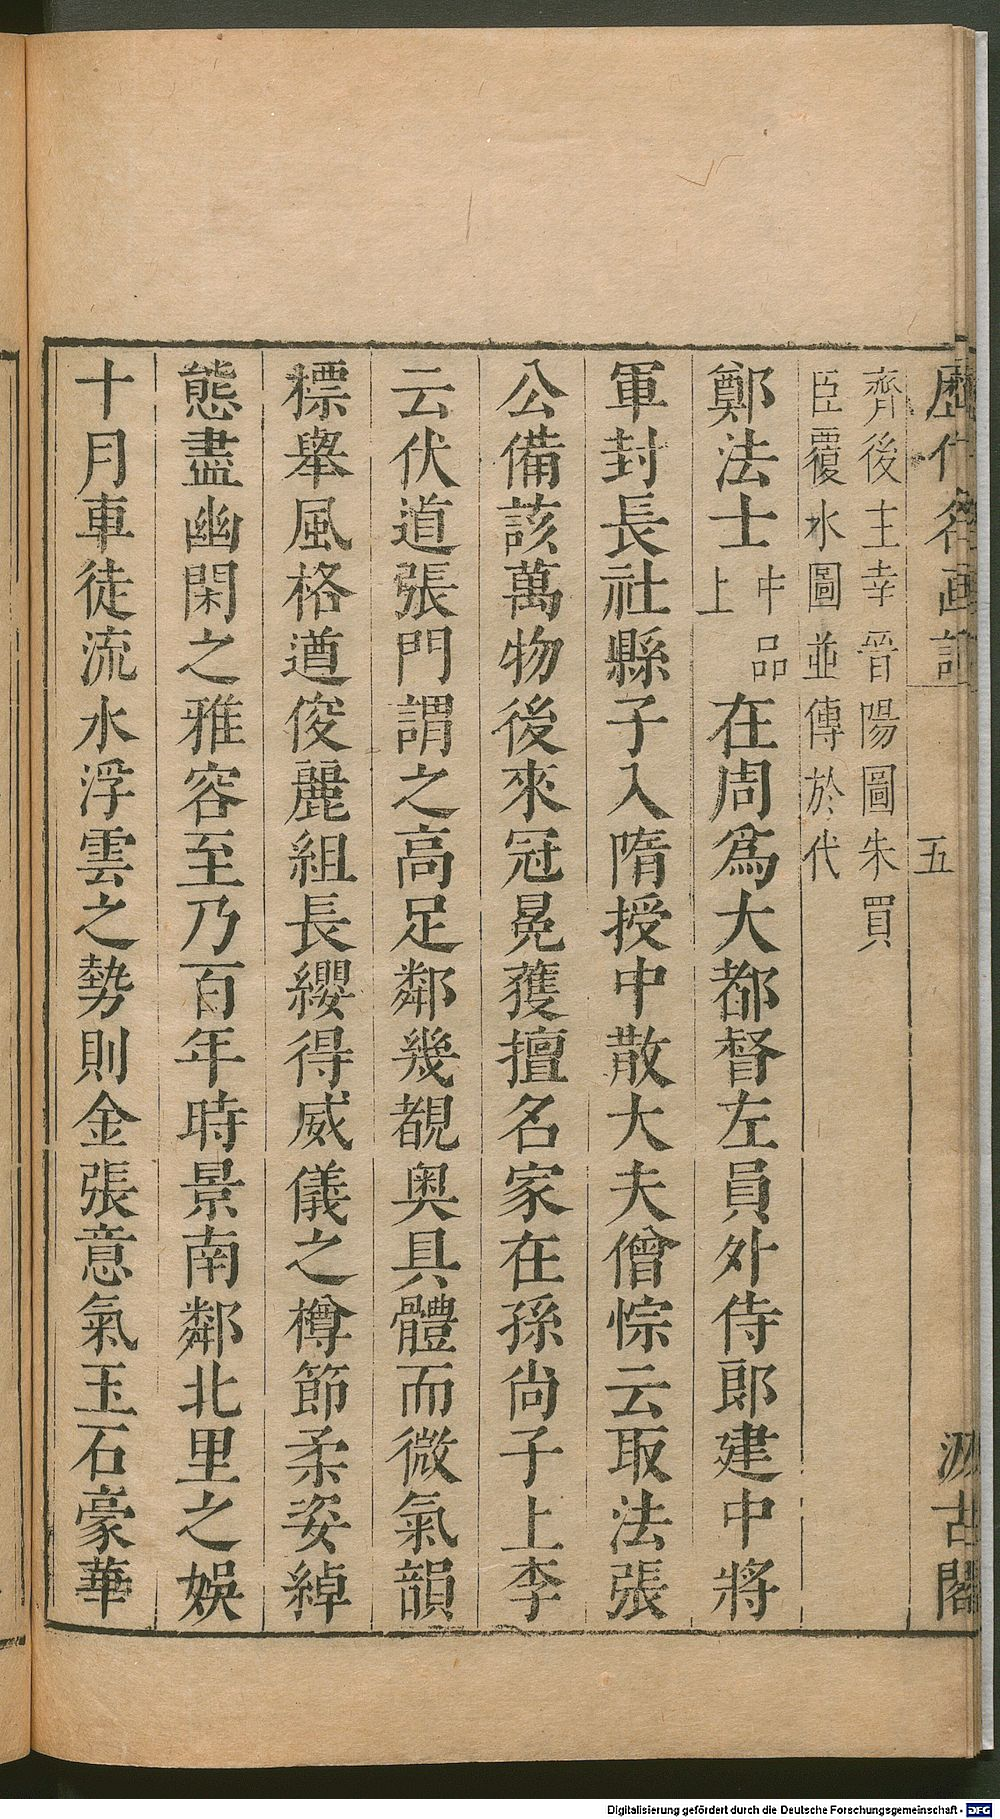 歷代名画記
五
汲古閣
齊後主幸晉陽圖朱買
臣覆水圖並傳於代
鄭法士中品上在周爲大都督左員外侍郎建中將
軍封長社縣子入隋授中散大夫僧悰云取法張
公備該萬物後來冠冕獲擅名家在孫尚子上李
云伏道張門謂之高足鄰幾覩奥具體而微氣韻
標舉風格遒俊麗組長纓得威儀之樽節柔姿綽
態盡幽閑之雅容至乃百年時景南鄰北里之娛
十月車徒流水浮雲之勢則金張意氣玉石豪華
Digitalisierung gefördert durch die Deutsche Forschungsgemeinschaft - DFG